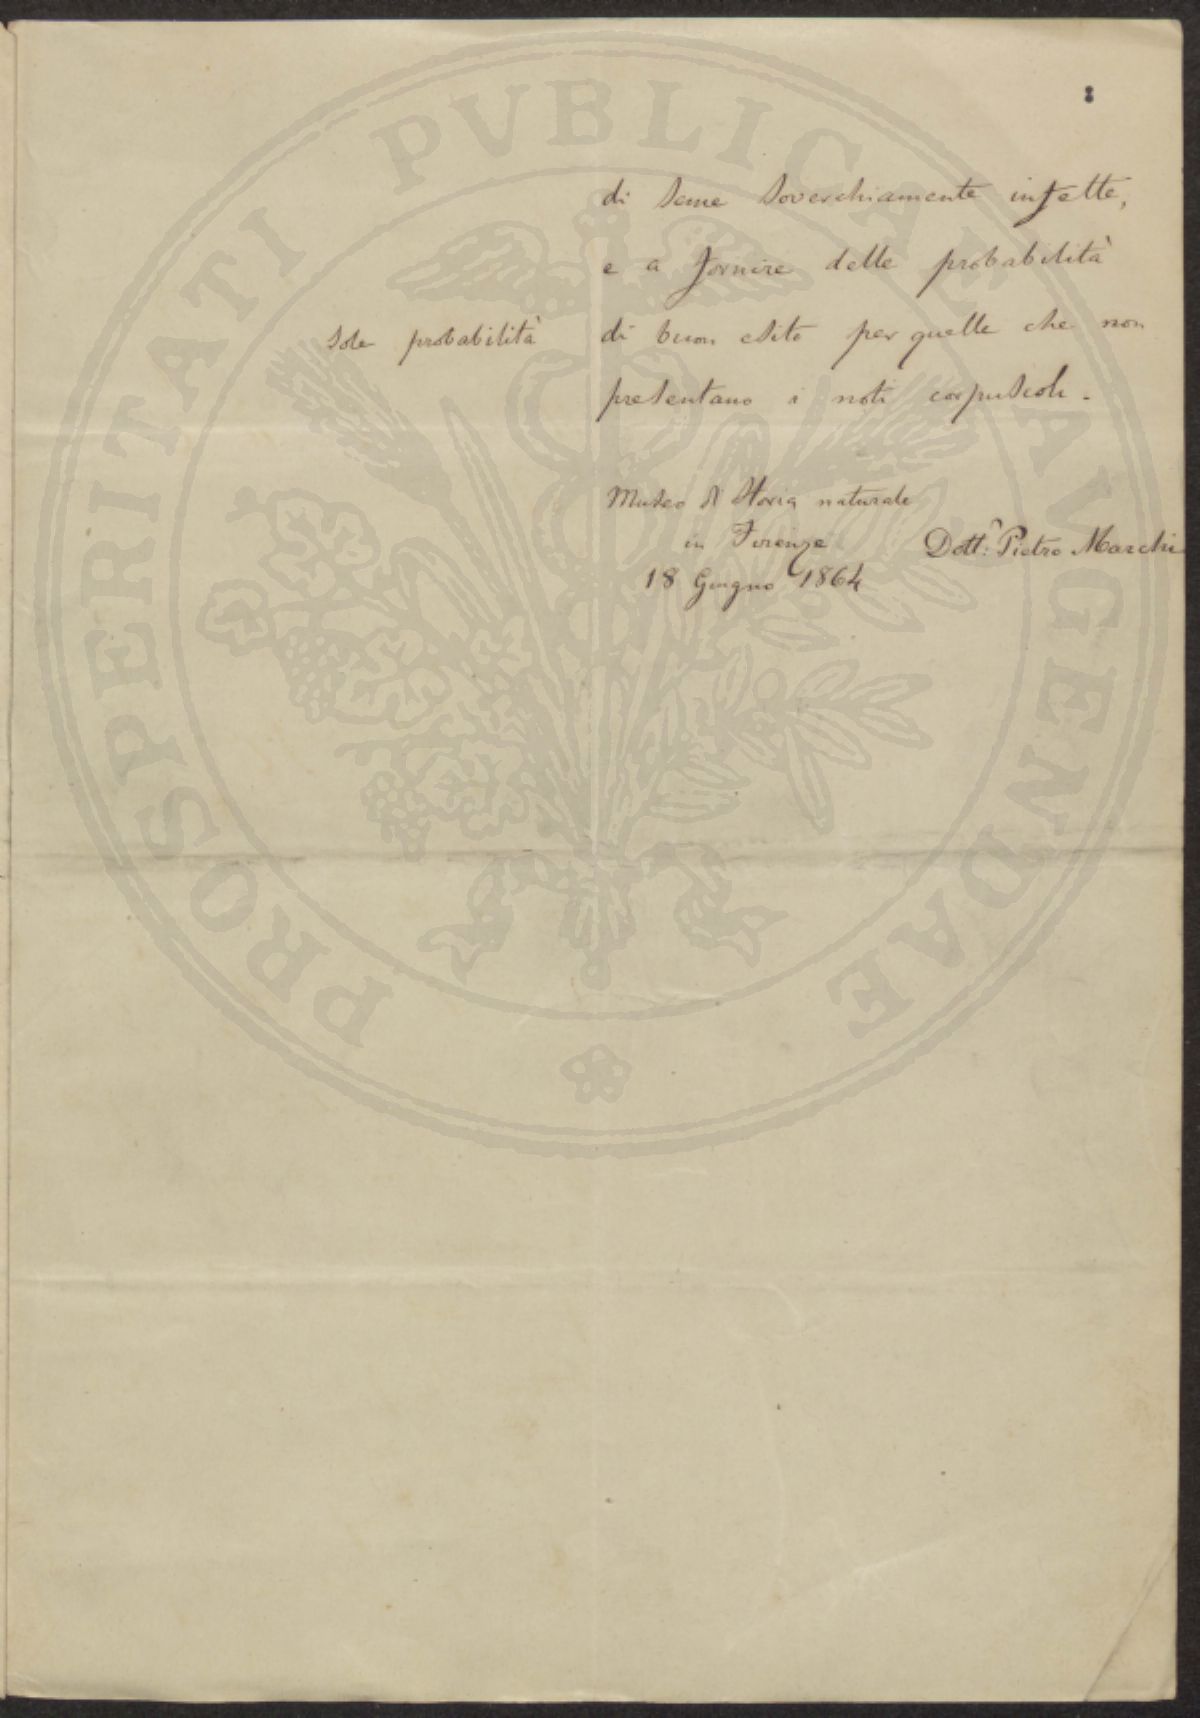 8
di seme soverchiamente infette,
e a fornire delle probabilità
sole probabilità
di buon esito per quelle che non
presentano i noti corpuscoli.
Museo di Storia naturale
in Firenze
18 Giugno 1864
Dott: Pietro Marchi
PROSPERITATI PVBLICAE AVGENDAE